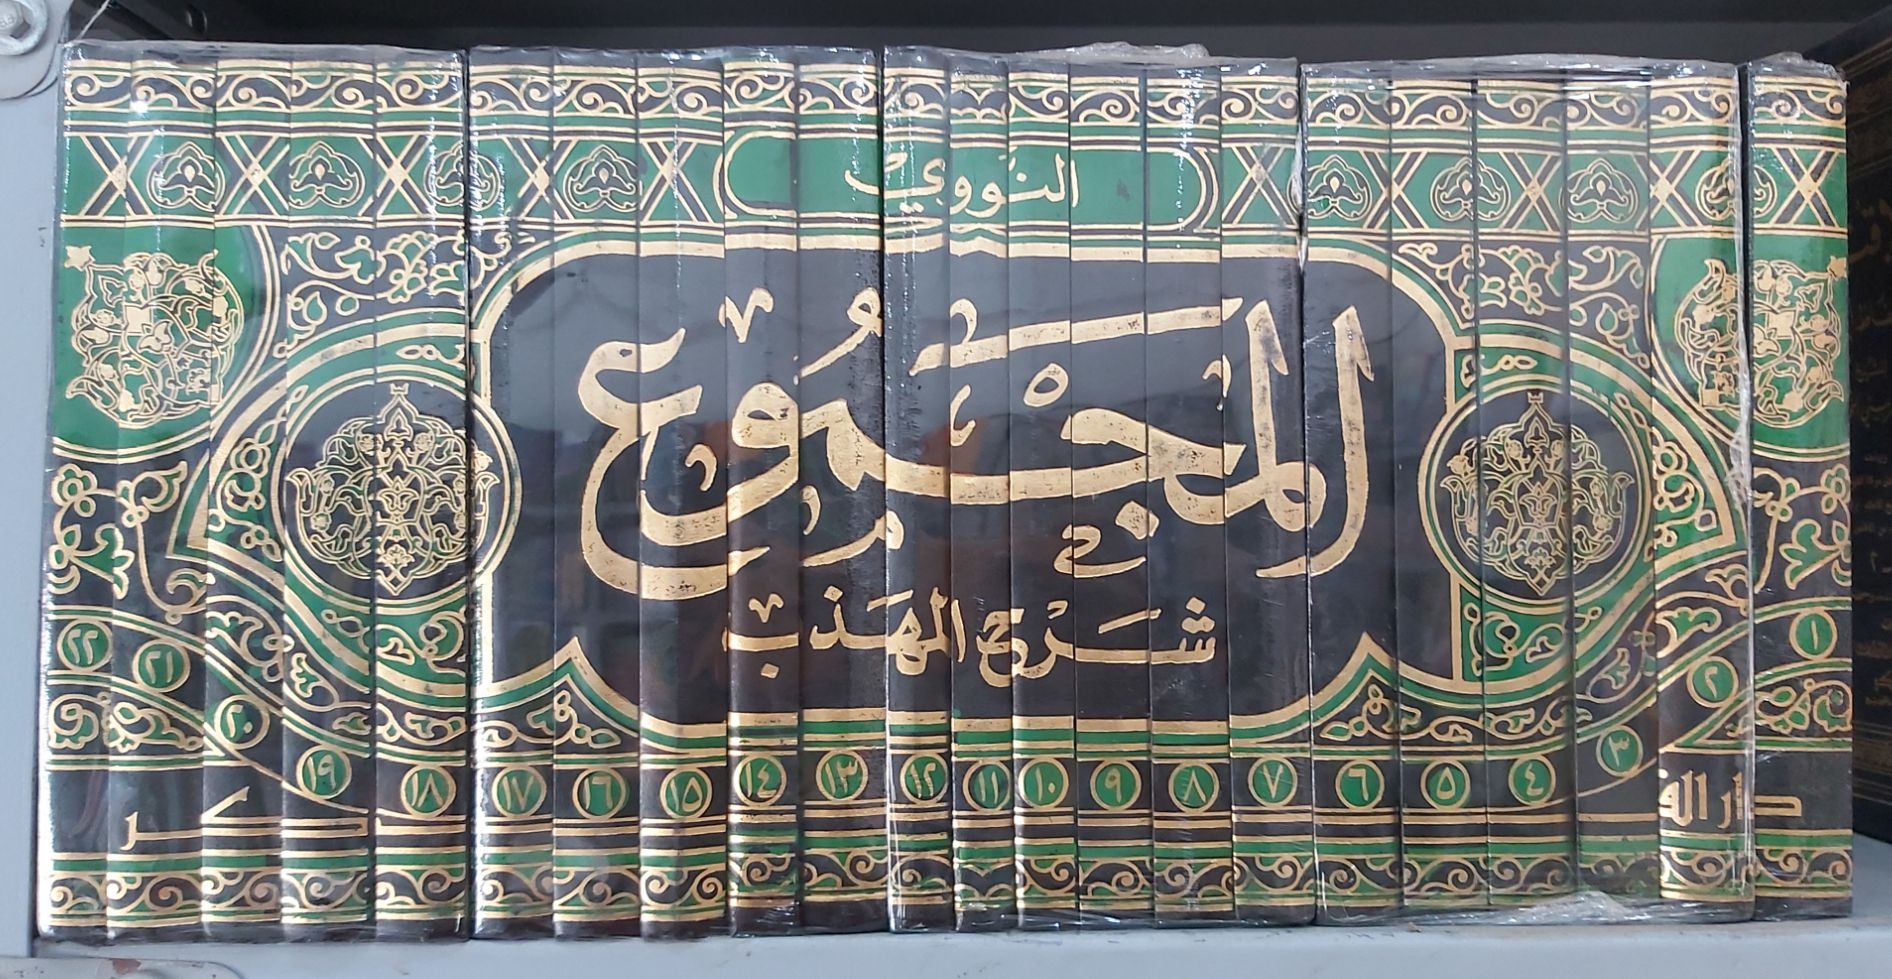 النَّوَوِيْ
المَجْمُوعُ
شَرْحُ المُهَذَّبْ
١ ٢ ٣ ٤ ٥ ٦ ٧ ٨ ٩ ١٠ ١١ ١٢ ١٣ ١٤ ١٥ ١٦ ١٧ ١٨ ١٩ ٢٠ ٢١ ٢٢
دار الفكر